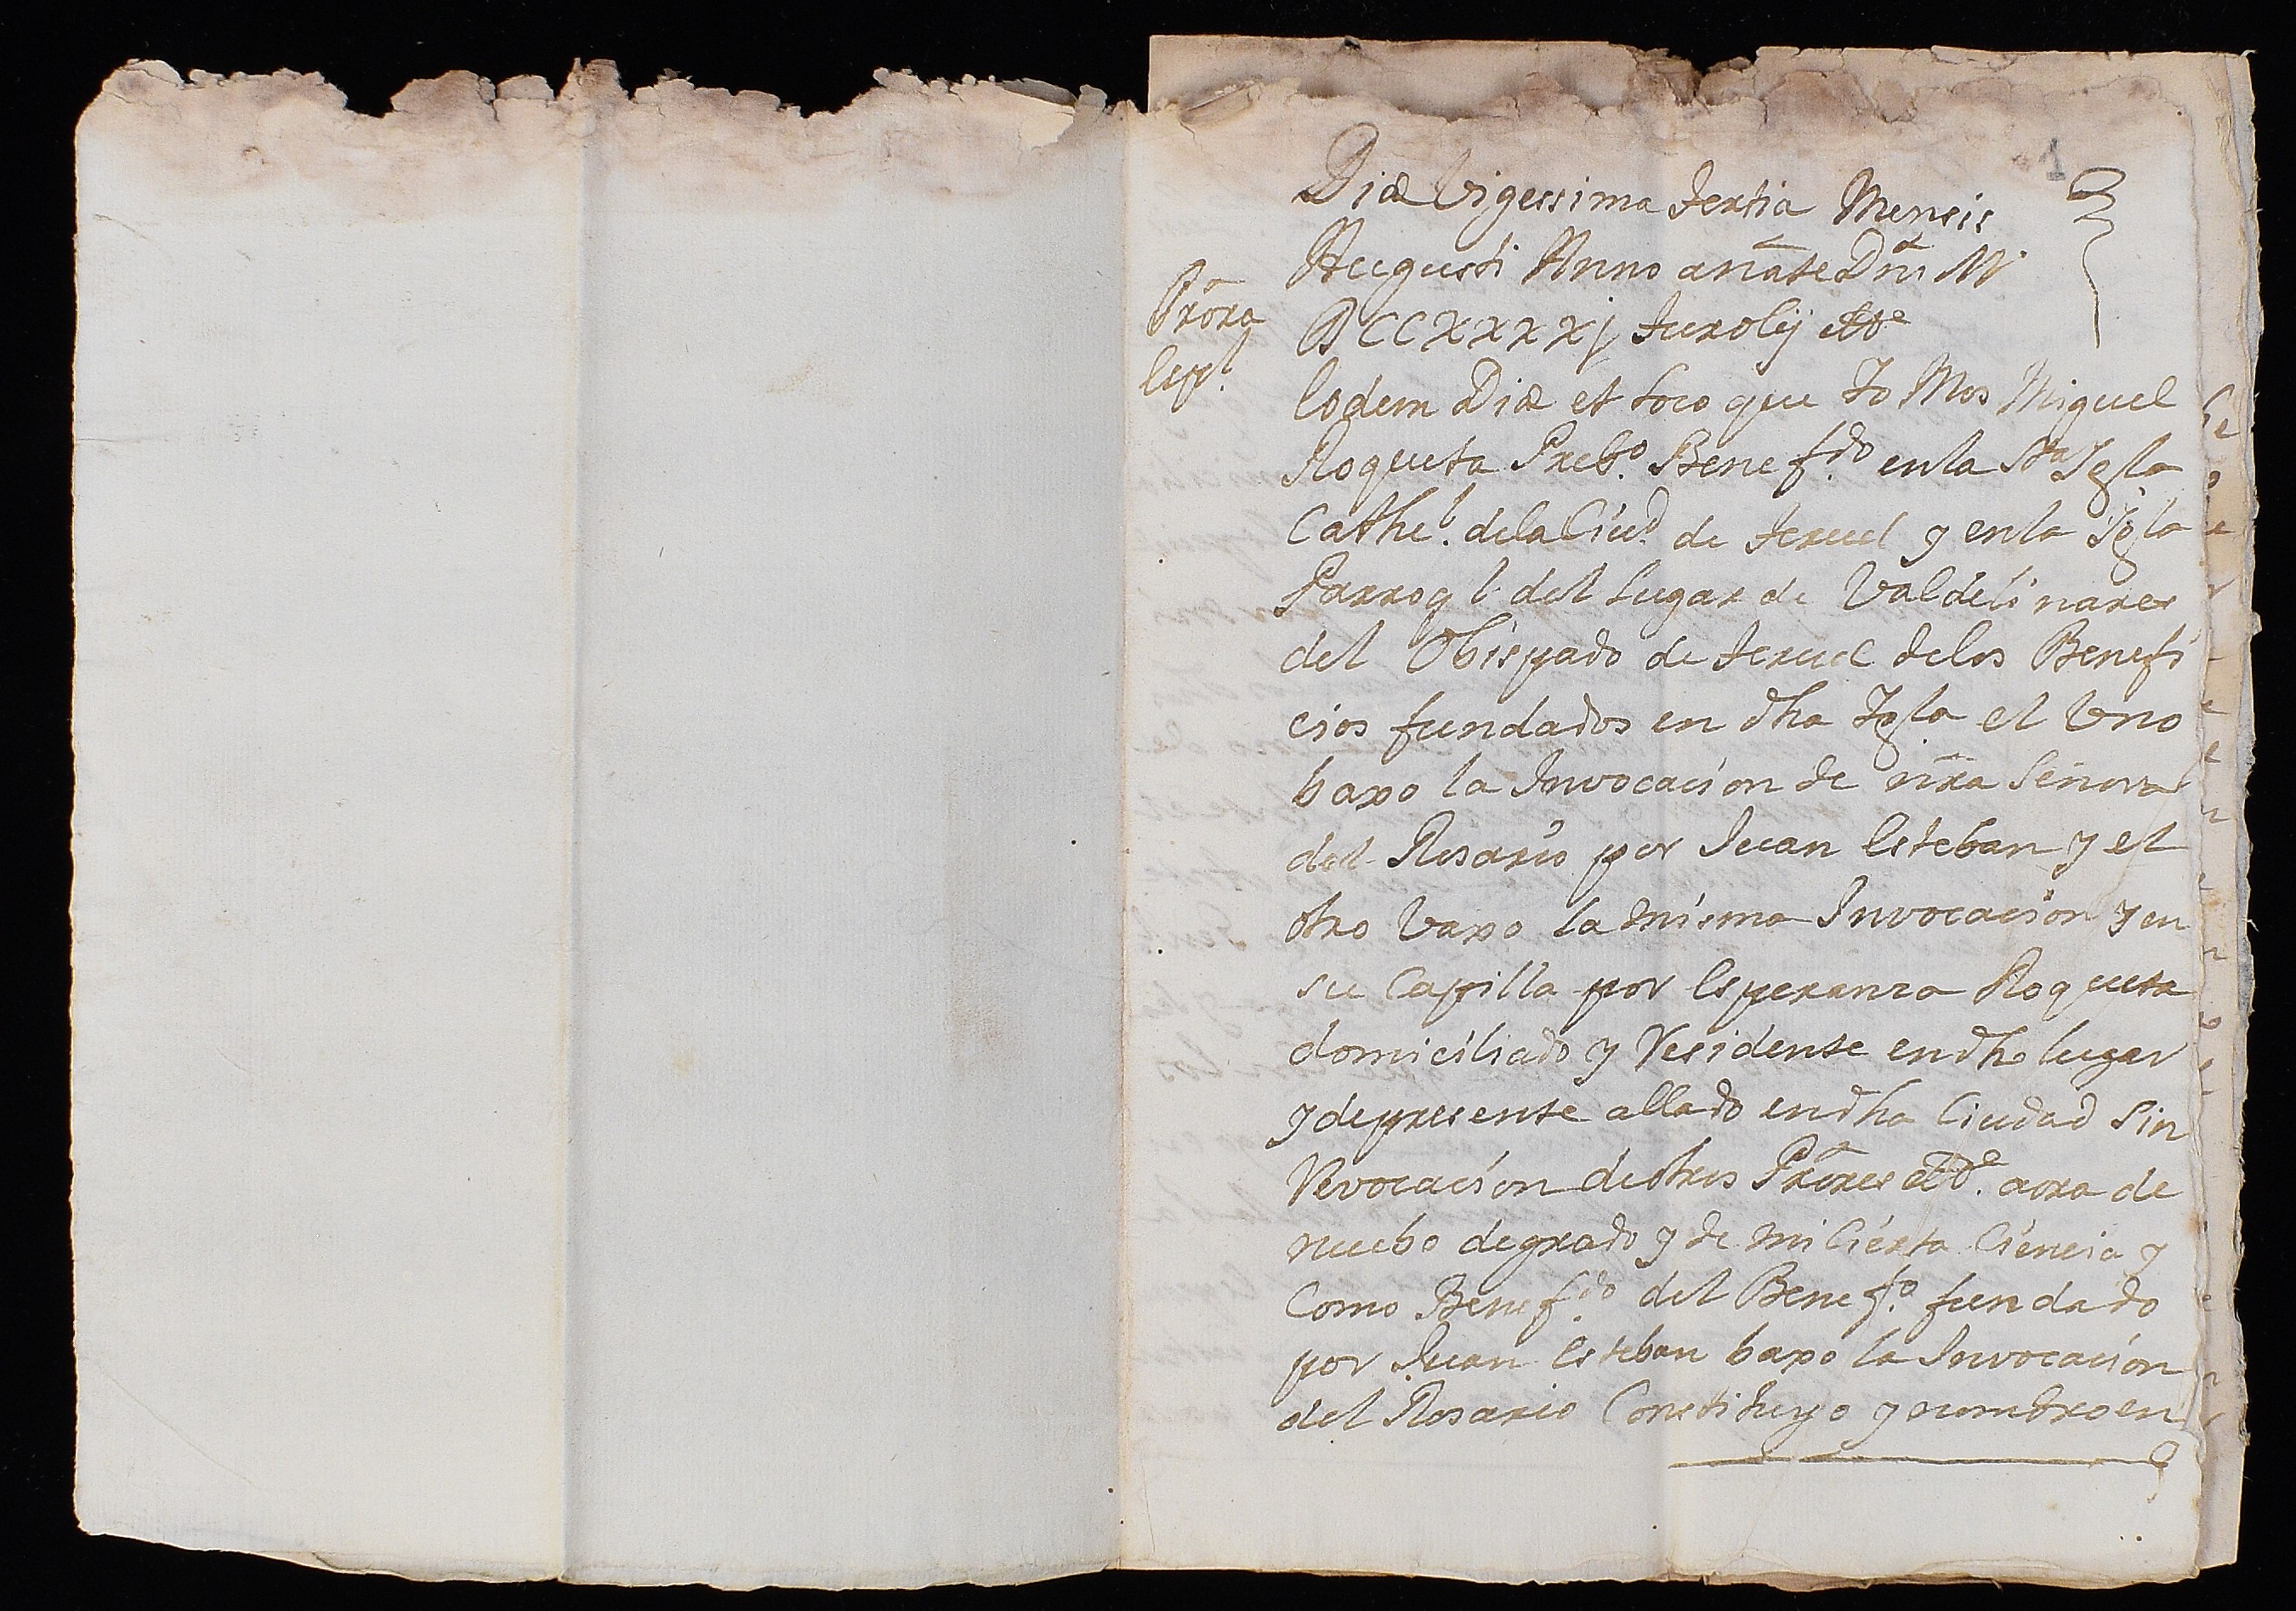 1
Die Vigessima tertia Mensis
Augusti Anno a nāte Dñi M
DCCXXXXj Turolij etta
Prõra
Eodem Die et loco que Yo Mos Miguel
Roqueta Prebo. Benefdo en la Sta Ygla
Cathel. dela Ciud. de Teruel y en la Ygla
Parroql. del Lugar de Valdelinares
del Obispado de Teruel delos Benefi
cios fundados en dha Ygla el Uno
baxo la Invocacion de nr̃a Señora
del Rosario por Juan Esteban y el
otro vaxo la misma Invocacion y en
su Capilla por Esperanza Roqueta
domiciliado y Residente en dho lugar
y depresente allado en dha Ciudad Sin
Revocacion de otros Prõres etta. aora de
nuebo degrado y de mi Cierta Ciencia y
Como Benefdo. del Benefo. fundado
por Juan Esteban baxo la Invocacion
del Rosario Constituyo y nombro en